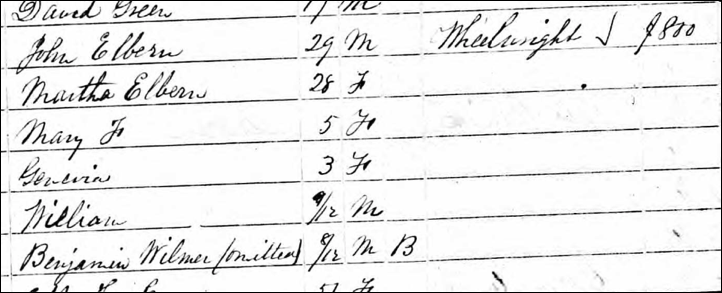 David Green 17 M
John Elbern 29 M Wheelwright $800
Martha Elbern 28 F
Mary F 5 F
Genevia 3 F
William 9/12 M
Benjamin Wilmer (omitted) 8/12 M B
F